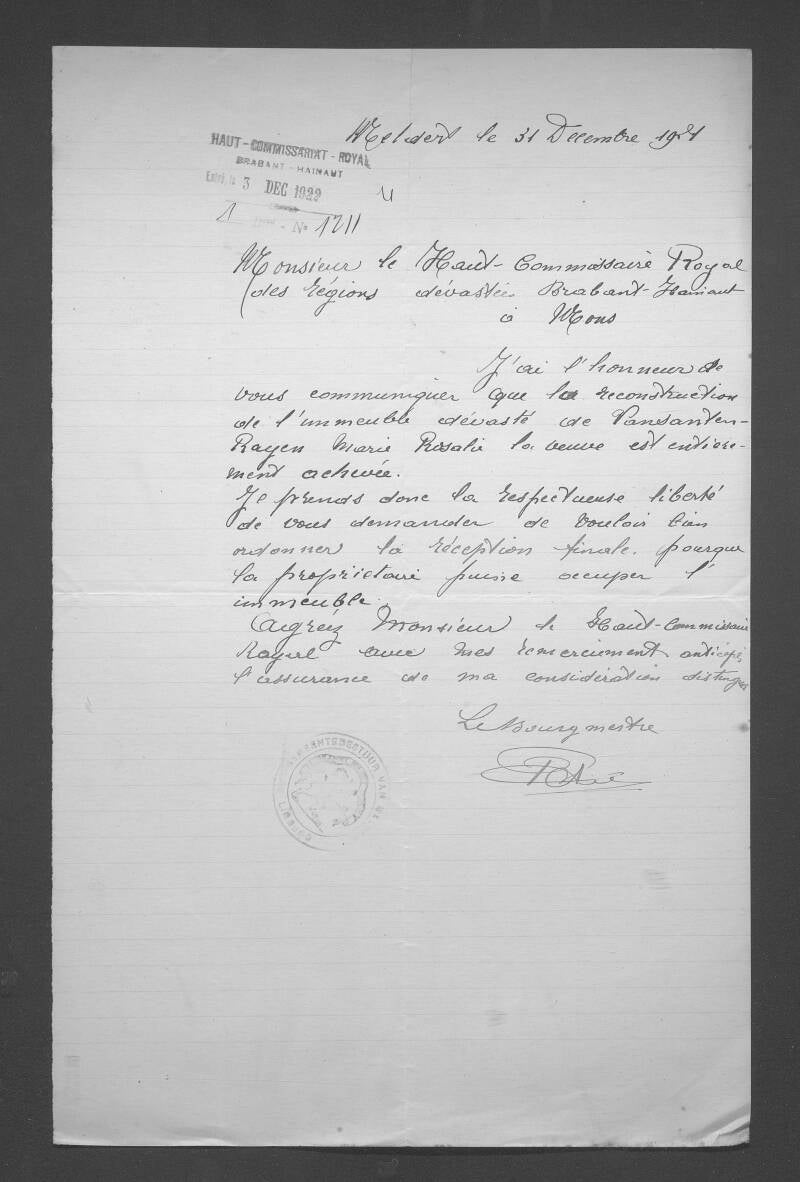 Meldert le 31 Decembre 1921
HAUT-COMMISSARIAT-ROYAL
BRABANT-HAINAUT
Entré le 3 DEC 1922
1 N° 1211
Monsieur le Haut-Commissaire Royal
des régions dévastées Brabant-Hainaut
à Mons
J'ai l'honneur de
vous communiquer que la reconstruction
de l'immeuble dévasté de Vansanten-
Rayen Marie Rosalie la veuve est entière-
ment achevée.
Je prends donc la respectueuse liberté
de vous demander de vouloir bien
ordonner la réception finale. pourque
la propriétaire puisse occuper l'
immeuble.
Agréez Monsieur le Haut-Commissaire
Royal avec mes remerciement anticipés
l'assurance de ma considération distingués
Le Bourgmestre
GEMEENTEBESTUUR VAN